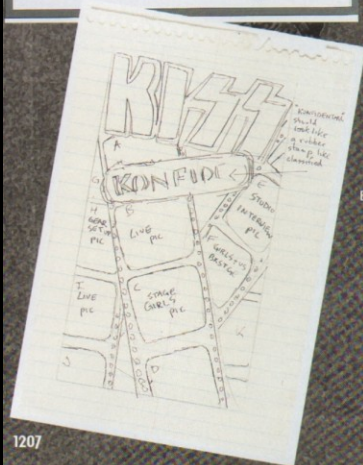 KISS
KONFIDENTIAL
should
look like
a rubber
stamp, like
classified
A
KONFIDE
E
STUDIO
INTERVIEW
PIC
G
H
GEAR
SETUP
PIC
B
LIVE
PIC
F
GIRLS
I
LIVE
PIC
C
STAGE
GIRLS
PIC
J
D
1207